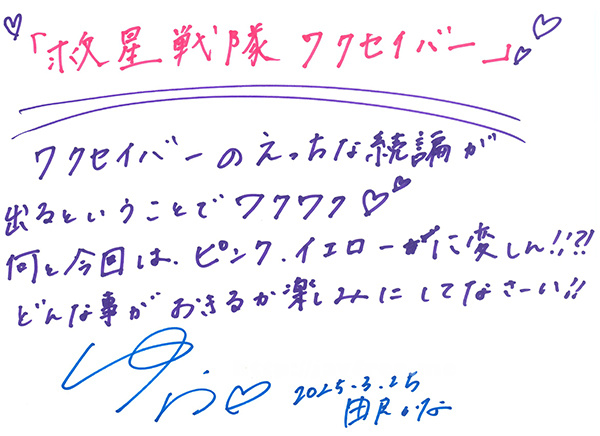 「救星戦隊 ワクセイバー」
ワクセイバーのえっちな続編が
出るということでワクワク♡♡
何と今回は、ピンク、イエローがに変しん!!?!
どんな事がおきるか楽しみにしてなさーい!!
ゆら♡
2025.3.25
由良かな